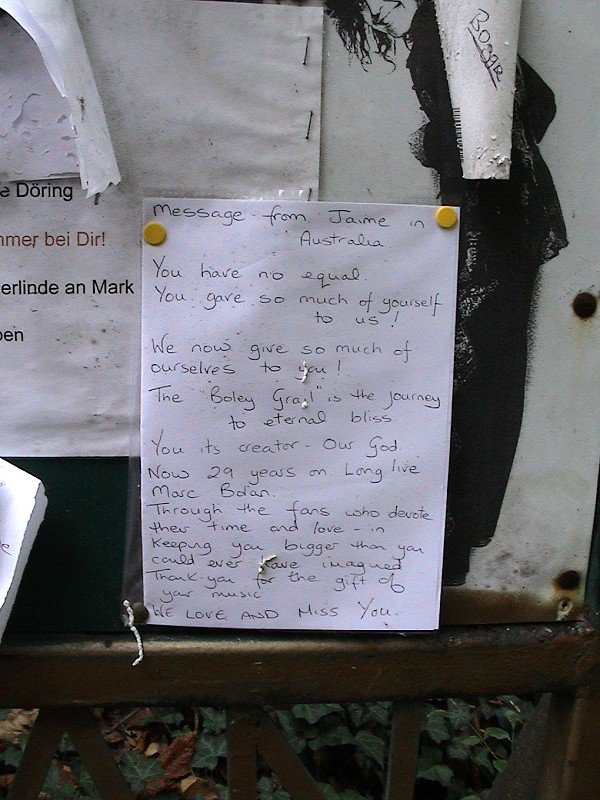 BOSAR
e Döring
mmer bei Dir!
erlinde an Mark
ben
Message from Jaime in
Australia
You have no equal.
You gave so much of yourself
to us!
We now give so much of
ourselves to you!
The "Boley Grail" is the journey
to eternal bliss.
You its creator - Our God
Now 29 years on Long live
Marc Bolan.
Through the fans who devote
their time and love - in
Keeping you bigger than you
could ever have imagined
Thank-you for the gift of
your music
WE LOVE AND MISS YOU.